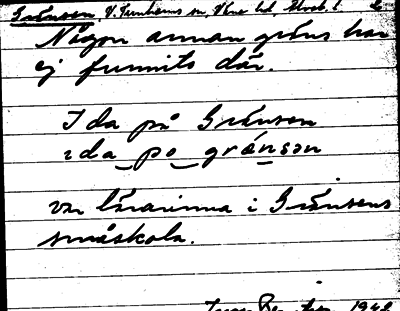 Gränsen, V. Turnhems sn, Väne hd, Älvsb. l.
Någon annan gräns har
ej funnits där.
Ida på Gränsen
ida po gränsən
var lärarinna i Gränsens
småskola.
1942